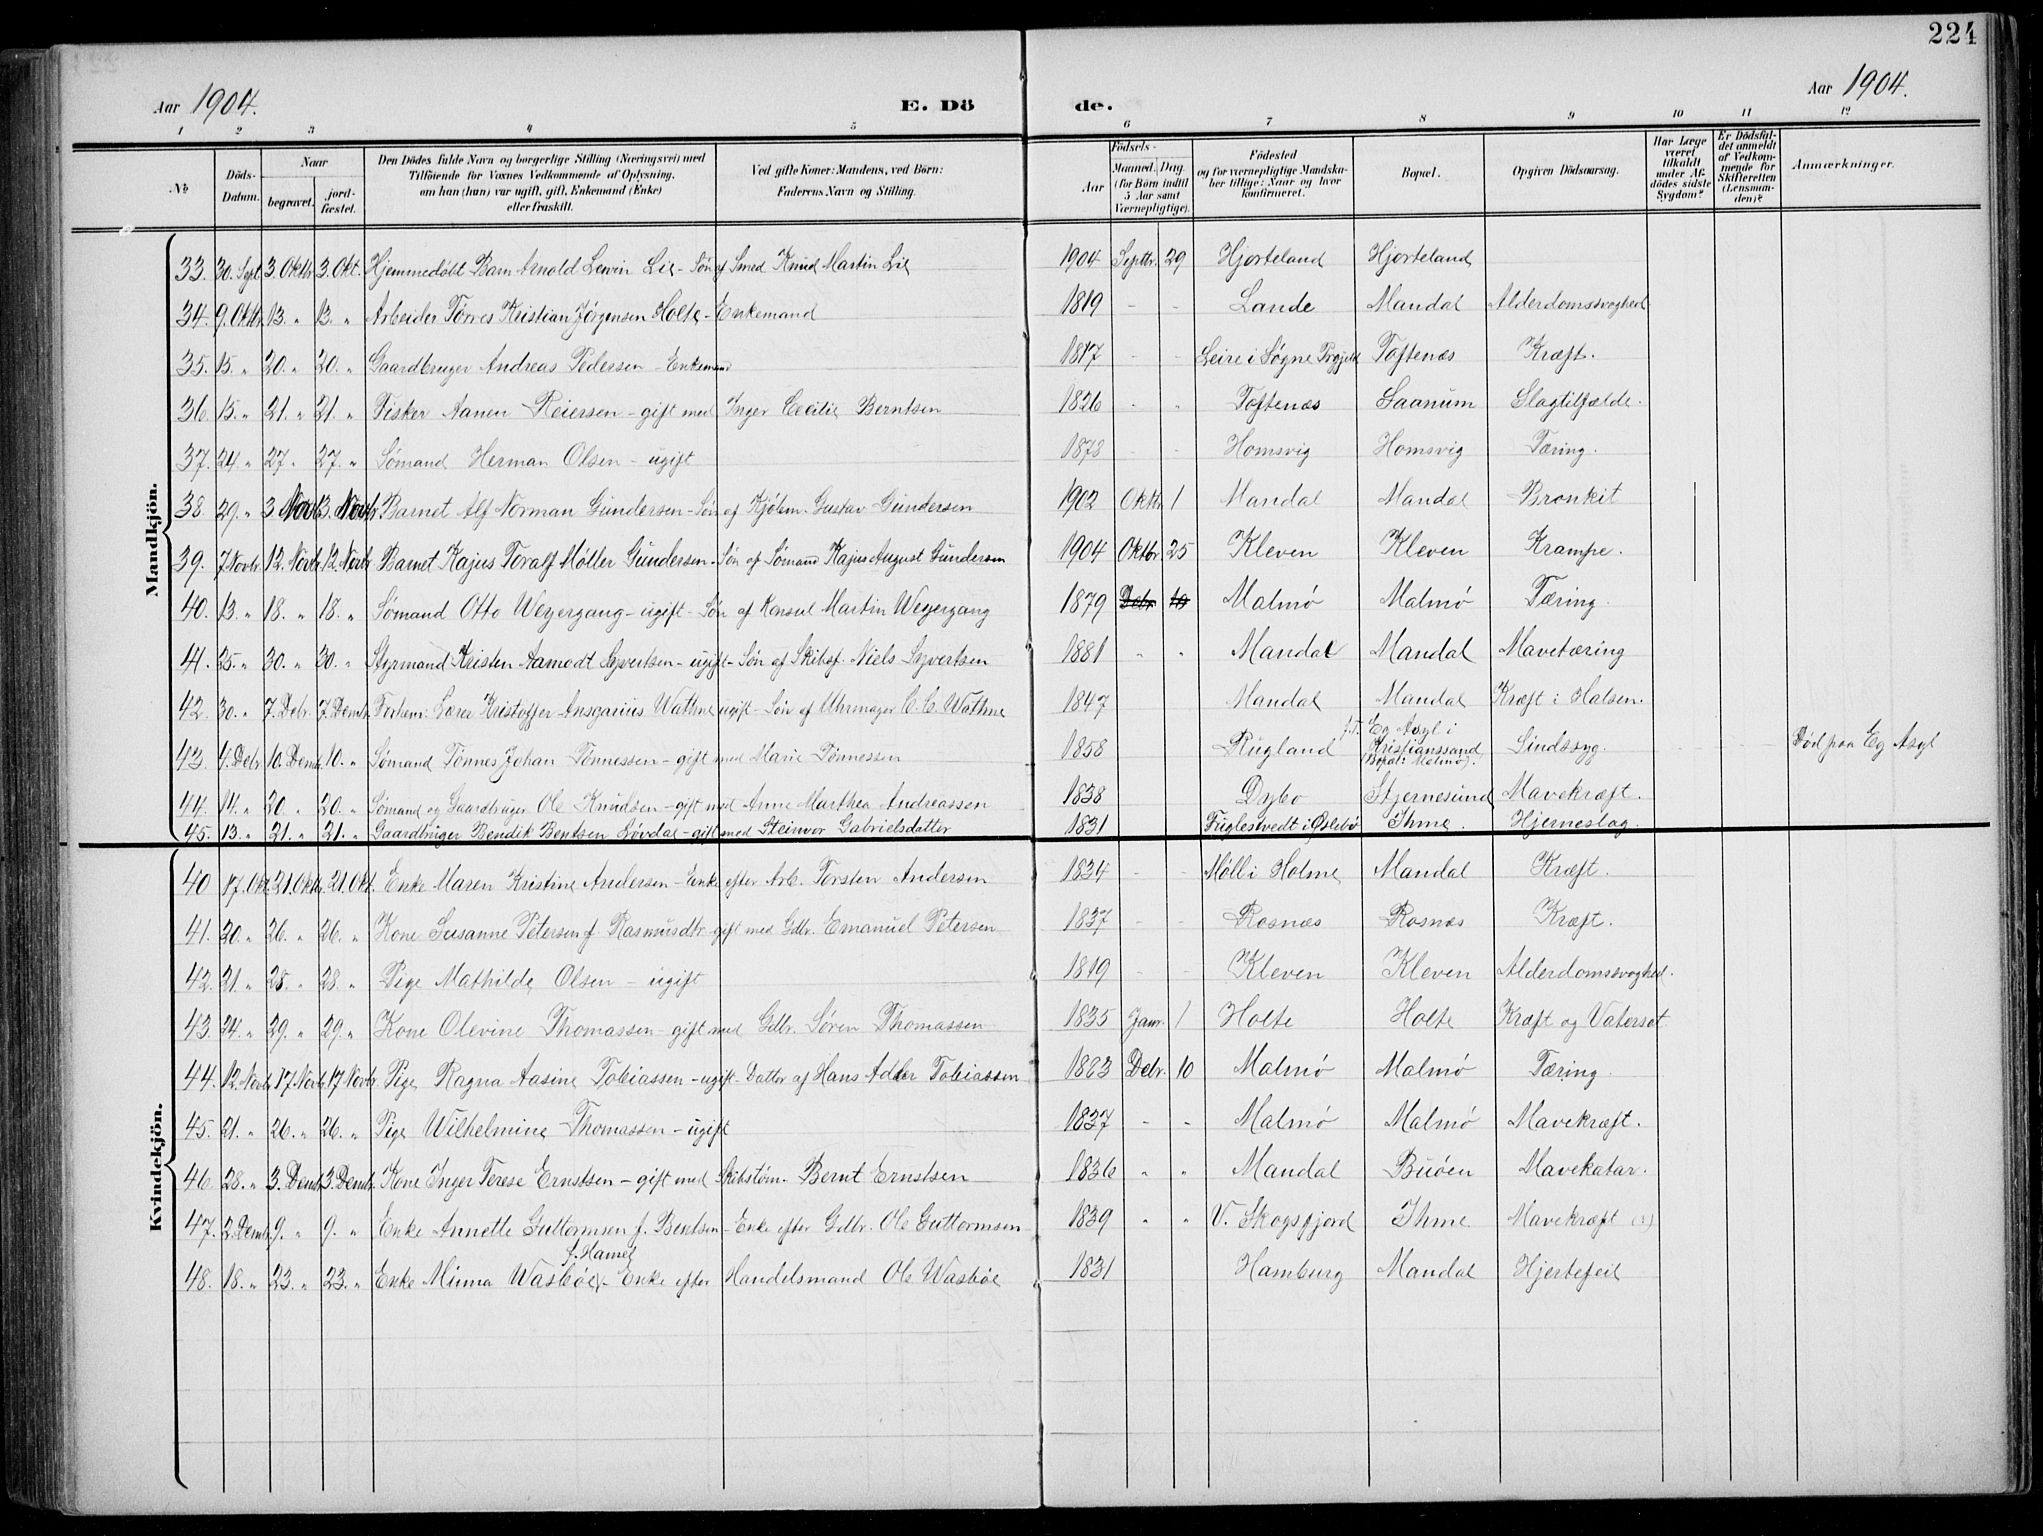 224
Aar 1904. E. Dö de. Aar 1904.
1 2 3 4 5 6 7 8 9 10 11 12
No Döds-Datum. Naar begravet. jord-fæstet. Den Dödes fulde Navn og borgerlige Stilling (Næringsvei) med Tilföiende for Voxnes Vedkommende af Oplysning, om han (hun) var ugift, gift, Enkemand (Enke) eller fraskilt. Ved gifte Koner: Mandens, ved Börn: Faderens Navn og Stilling. Födsels- Aar Maaned. Dag. (for Börn indtil 5 Aar samt Værnepligtige). Födested og for værnepligtige Mandskaber tillige: Naar og hvor konfirmeret. Bopæl. Opgiven Dödsaarsag. Har Læge været tilkaldt under Afdödes sidste Sygdom? Er Dödsfaldet anmeldt af Vedkommende for Skifteretten (Lensmanden)? Anmærkninger.
Mandkjön.
33. 30. Sept. 3. Oktbr. 3. Okt. Hjemmedøbt Barn Arnold Lewin Lie - Søn af Smed Knud Martin Lie 1904 Septbr. 29 Hjorteland Hjorteland
34. 9. Oktbr. 13. „ 13. „ Arbeider Tørres Kristian Jørgensen Holte - Enkemand 1819 - - Lande Mandal Alderdomssvaghed
35. 15. „ 20. „ 20. „ Gaardbruger Andreas Pedersen - Enkemand 1817 - - Leire i Søgne Prgjeld Toftenæs Kræft.
36. 15. „ 21. „ 21. „ Fisker Aanen Reiersen - gift med Inger Cecilie Berntsen 1826 - „ Toftenæs Saanum Slagtilfælde.
37. 24. „ 27 „ 27. „ Sømand Herman Olsen - ugift 1878 - - Homsvig Homsvig Tæring.
38 29. „ 3. Novb. 3. Novbr. Barnet Alf Norman Gundersen - Søn af Kjøbm. Gustav Gundersen 1902 Oktbr. 1 Mandal Mandal Bronkit
39. 7 Novbr. 12. Novbr. 12. Novbr. Barnet Kajus Toralf Møller Gundersen - Søn af Sømand Kajus August Gundersen 1904 Oktbr. 25 Kleven Kleven Krampe.
40. 13. „ 18. „ 18. „ Sømand Otto Weyergang - ugift - Søn af Konsul Martin Weyergang 1879 Debr. 10 Malmø Malmø Tæring.
41. 25. „ 30. „ 30. „ Styrmand Kristen Aamodt Syvertsen - ugift - Søn af Skibsf. Niels Syvertsen 1881 „ „ Mandal Mandal Mavetæring
42. 30. „ 7. Debr. 7. Dembr. Forhenv. Lærer Kristoffer Ansgarius Wathne ugift - Søn af Uhrmager C. C. Wathne 1847 Mandal Mandal Kræft i Halsen.
43. 4. Debr. 10. Dembr. 10. „ Sømand Tønnes Johan Tønnessen - gift med Marie Tønnessen 1858 Rugland Eg Asyl i Kristianssand (Bopæl: Malmø). Sindssyg. Død paa Eg Asyl
44. 14. „ 20. „ 20. „ Sømand og Gaardbruger Ole Knudsen - gift med Anne Marthea Andreassen 1838 Dybo Stjernesund Mavekræft.
45. 13. „ 21. „ 21. „ Gaardbruger Bendik Bentsen Lovdal - gift med Steinvor Gabrielsdatter 1831 Fuglestvedt i Øslebø Ihme. Hjerneslag.
Kvindekjön.
40 17. Okt. 21. Oktb. 21. Okt. Enke Maren Kristine Andersen - Enke efter Arb. Torsten Andersen 1834 - - Møll i Holme Mandal Kræft.
41. 20. „ 26. „ 26. „ Kone Susanne Petersen f. Rasmusdtr. gift med Gdbr. Emanuel Petersen 1837 - - Rosnæs Rosnæs Kræft.
42. 21. „ 28. „ 28. „ Pige Mathilde Olsen - ugift 1819 - - Kleven Kleven Alderdomssvaghed.
43. 24. „ 29. „ 29. „ Kone Olevine Thomassen - gift med Gdbr. Søren Thomassen 1835 Janr. 1 Holte Holte Kræft og Vatersot
44. 12. Novbr. 17 Novb. 17 Novbr. Pige Ragna Aasine Tobiassen - ugift - Datter af Hans Adler Tobiassen 1883 Debr. 10 Malmø Malmø Tæring.
45. 21. „ 26. „ 26. „ Pige Wilhelmine Thomassen - ugift 1837 - - Malmø Malmø Mavekræft.
46. 28. „ 3. Demb. 3. Dembr. Kone Inger Terese Ernstsen - gift med Skibstøm. Bernt Ernstsen 1836 „ „ Mandal Buøen Mavekatar.
47. 2. Dembr. 9. „ 9. „ Enke Annette Guttormsen f. Bentsen - Enke efter Gdbr. Ole Guttormsen 1839 „ „ V. Skogsfjord Ihme Mavekræft (?)
48. 18. „ 23. „ 23. „ Enke Minna Wasbøe, f. Hamel - Enke efter Handelsmand Ole Wasbøe 1831 Hamburg Mandal Hjertefeil